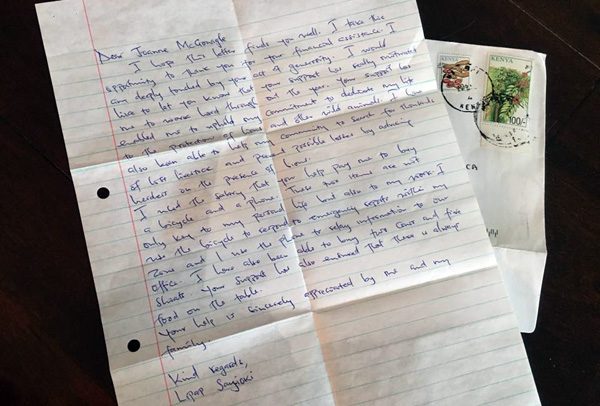 Dear Joanne McGonagle
I hope this letter finds you well. I take this
opportunity to thank you for your financial assistance. I
am deeply touched by your act of generosity. I would
like to let you know that your support has really motivated
me to work hard through out the year. Your support has
enabled me to uphold my commitment to dedicate my life
to the protection of lions and other wild animals. I have
also been able to help my community to search for thousands
of lost livestock and prevent possible losses by advising
herders on the presence of lions.
I used the salary that you help pay me to buy
a bicycle and a phone. These two items are not
only key to my personal life but also to my work. I
use the bicycle to respond to emergency reports within my
Zone and I use the phone to relay information to our
office. I have also been able to buy two cows and five
Shoats. Your support has also ensured that there is always
food on the table.
Your help is sincerely appreciated by me and my
family.
Kind regards,
KENYA
KENYA
100/-
CA